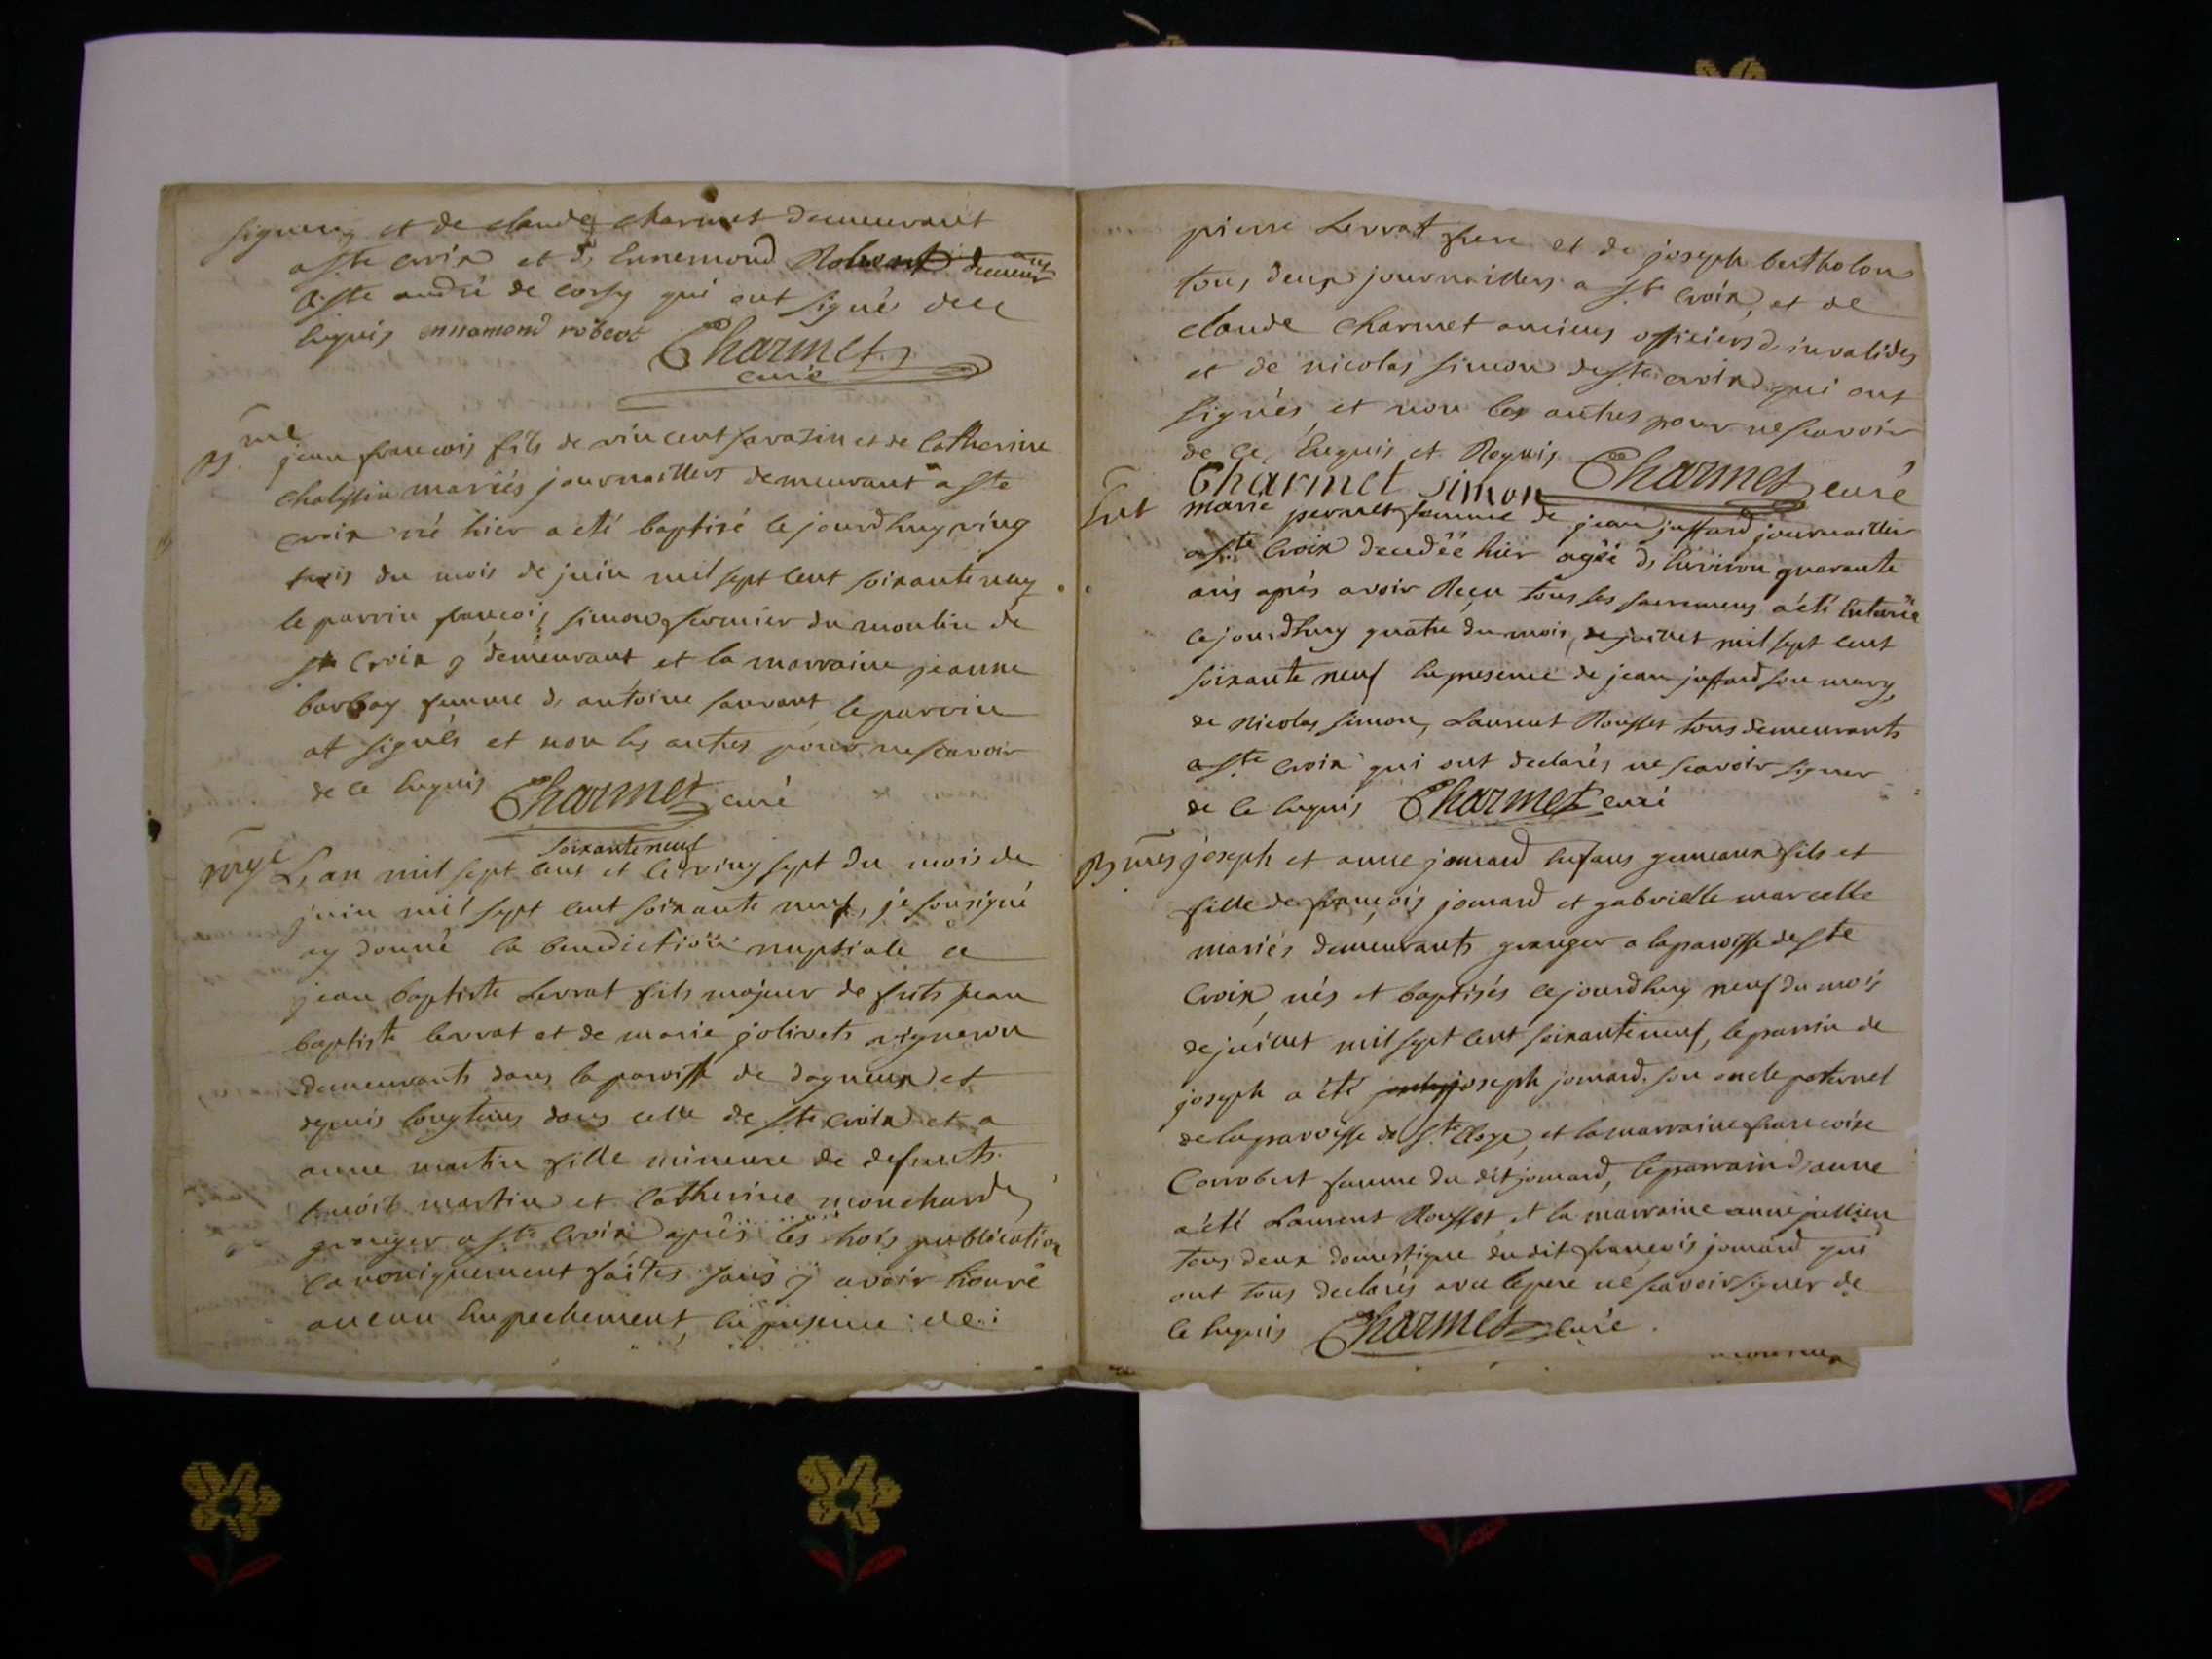 signer et de claude charmet demeurant
a ste croix et d, Ennemond Robert demeurant
a ste andré de corsy qui ont signé de ce
Enquis ennamond robert Charmet
curé
B.me jean francois fils de vincent sarazin et de Catherine
mariés journailler demeurant a ste
croix né hier a eté baptisé le jourdhuy ving
trois du mois de juin mil sept cent soixante neuf
le parrin francois simon fermier du moulin de
ste Croix y demeurant et la marraine jeanne
barbay femme d, antoine le parrin
at signés et non les autres pour ne scavoir
de ce Enquis Charmet curé
soixante neuf
mge L, an mil sept cent et le ving sept du mois de
juin mil sept cent soixante neuf, je sousigné
ay donné la benediction nuptiale a
jean baptiste Levrat fils majeur de futs jean
baptiste levrat et de marie jolivets vigneron
demeurants dans la paroisse de dagneux et
depuis longtems dans celle de ste croix et a
anne martin fille mineure de defunts
benoit martin et Catherine monchard
granger a ste Croix après les trois publication
canoniquement faites sans y avoir trouvé
aucun Empechement, En presence de
pierre Levrat frere et de joseph bertholon
tous deux journaillers a ste Croix, et de
claude charmet anciens officiers d, invalides
et de nicolas simon de ste croix qui ont
signés et non les autres pour ne scavoir
de ce Enquis et Requis Charmet curé
Charmet simon
Ent marie pernet femme de jean juffard journailler
a ste Croix decedéé hier agéé d, Environ quarante
ans après avoir Reçu tous ses sacremens a eté Enterrée
le jourdhuy quatre du mois de juillet mil sept cent
soixante neuf En presence de jean juffard son mary,
de Nicolas simon, Laurent Rousset tous demeurants
a ste croix qui ont declarés ne scavoir signer
de ce Enquis Charmet curé
B.mes joseph et anne jomard Enfans gemeaux fils et
fille de françois jomard et gabrielle marcelle
mariés demeurants granger a la paroisse de ste
Croix nés et baptisés le jourdhuy neuf du mois
de juillet mil sept cent soixante neuf, le parrin de
joseph a été joseph jomard son oncle paternel
de la paroisse de ste et la marraine francoise
Carrobert femme du dit jomard, le parrain d, anne
a eté Laurent Rousset et la marraine anne jullien
tous deux domestique du dit francois jomard qui
ont tous declarés avec le pere ne scavoir signer de
ce Enquis Charmet curé.